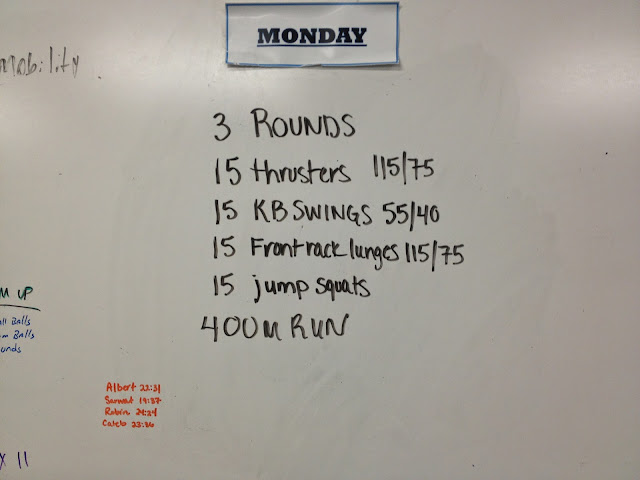 MONDAY
Mobility
3 ROUNDS
15 thrusters 115/75
15 KB SWINGS 55/40
15 Front rack lunges 115/75
15 jump squats
400M RUN
M UP
ll Balls
m Balls
unds
Albert 22:31
Sarwat 19:37
Robin 24:24
Caleb
X 11